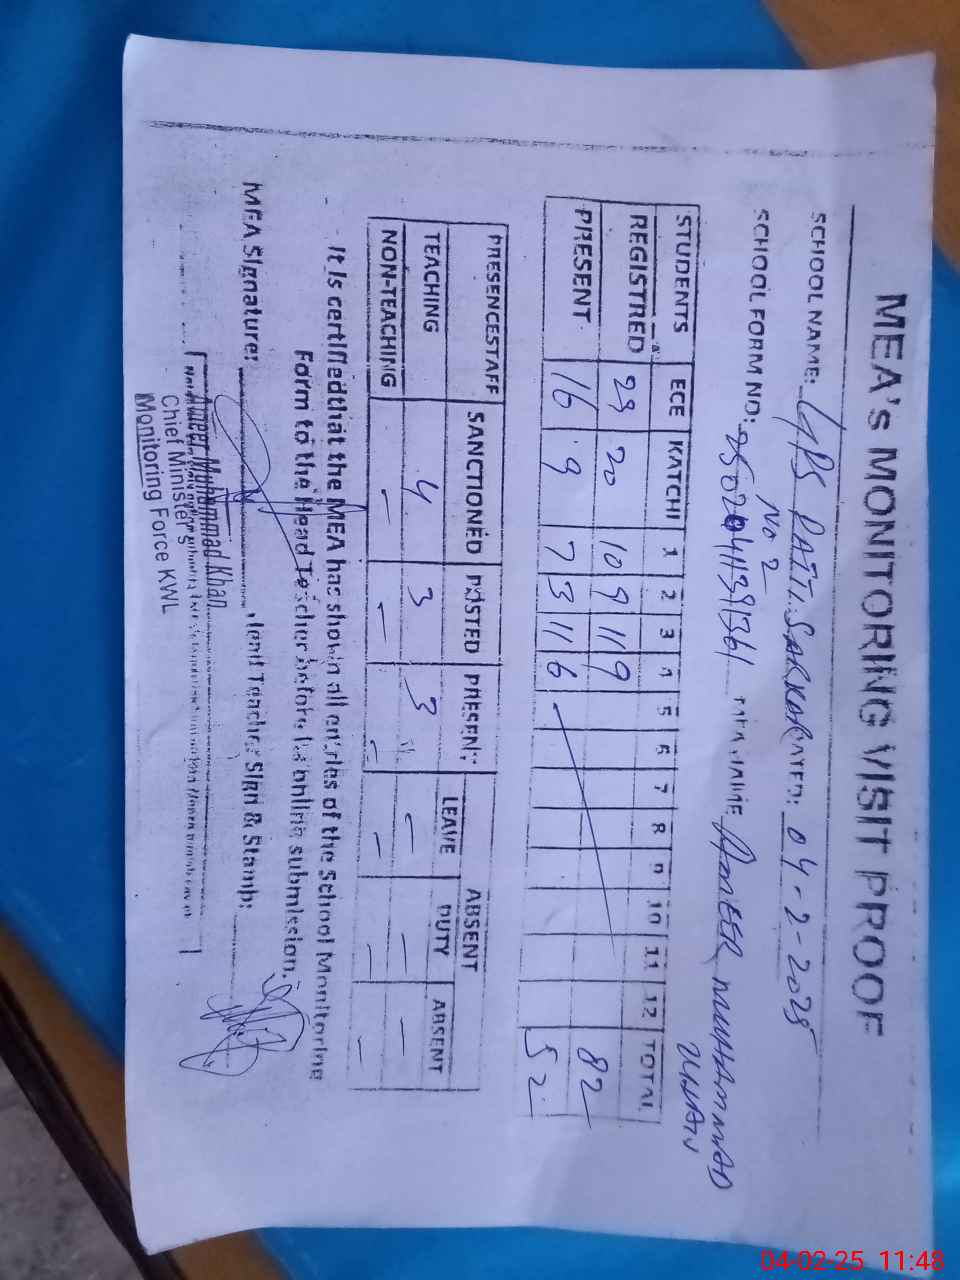 MEA's MONITORING VISIT PROOF
SCHOOL NAME: GPS PATTI SARKOR DATED: 04-2-2025
NO 2
SCHOOL FORM NO: MEA NAME AMEER MUHAMMAD
KHAN
STUDENTS ECE KATCHI 1 2 3 4 5 6 7 8 9 10 11 12 TOTAL
REGISTRED 29 20 10 9 11 9 82
PRESENT 16 9 7 3 11 6 52
PRESENCESTAFF SANCTIONED POSTED PRESENT ABSENT
LEAVE DUTY ABSENT
TEACHING 4 3 3 - - -
NON-TEACHING - - - - - -
It is certifiedthat the MEA has shown all entries of the School Monitoring
Form to the Head Teacher before its online submission.
MEA Signature: Teacher Sign & Stamp:
Ameer Muhammad Khan
Chief Minister's
Monitoring Force KWL
04-02-25 11:48